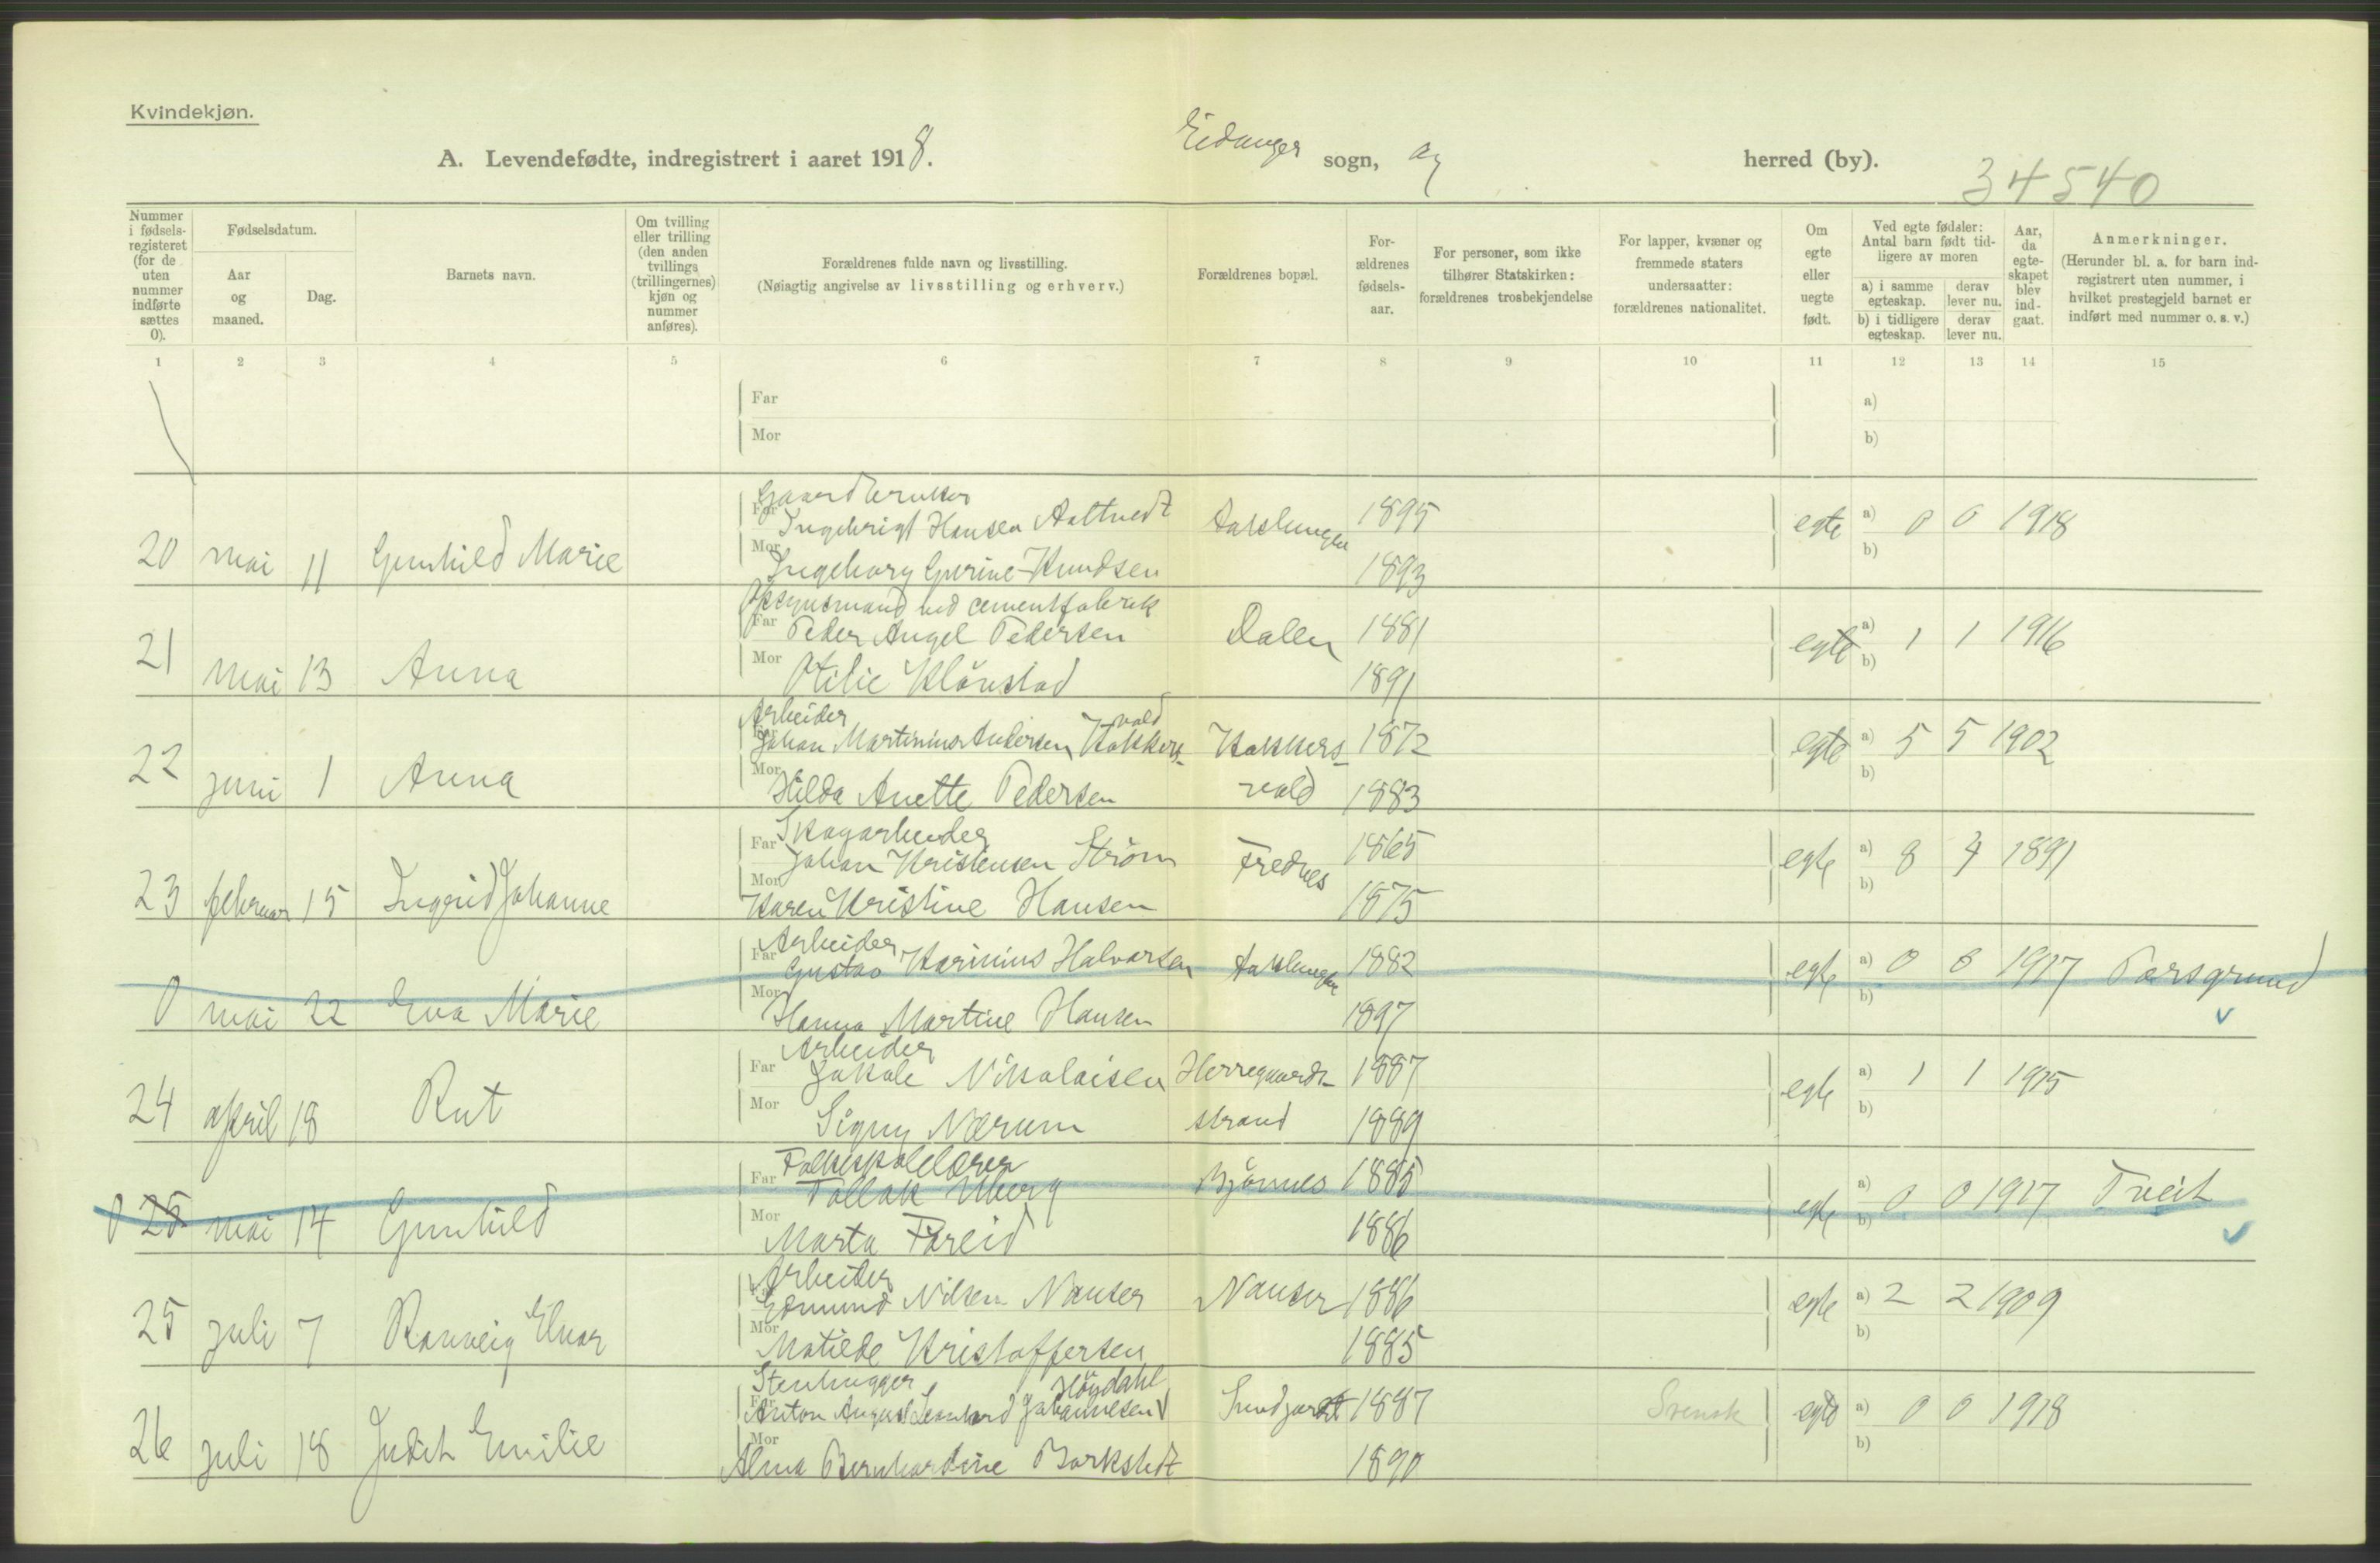 Kvindekjøn.
A. Levendefødte, indregistrert i aaret 1918. Eidanger sogn, og herred (by). 34540
Nummer i fødselsregisteret (for de uten nummer indførte sættes 0).
Fødselsdatum.
Aar og maaned.
Dag.
Barnets navn.
Om tvilling eller trilling (den anden tvillings (trillingernes) kjøn og nummer anføres).
Forældrenes fulde navn og livsstilling.
(Nøiagtig angivelse av livsstilling og erhverv.)
Forældrenes bopæl.
Forældrenes fødselsaar.
For personer, som ikke tilhører Statskirken: forældrenes trosbekjendelse
For lapper, kvæner og fremmede staters undersaatter: forældrenes nationalitet.
Om egte eller uegte født.
Ved egte fødsler: Antal barn født tidligere av moren
a) i samme egteskap. derav lever nu.
b) i tidligere egteskap. derav lever nu.
Aar, da egteskapet blev indgaat.
Anmerkninger.
(Herunder bl. a. for barn indregistrert uten nummer, i hvilket prestegjeld barnet er indført med nummer o. s. v.)
1 2 3 4 5 6 7 8 9 10 11 12 13 14 15
Far a)
Mor b)
Gaardbruker
Far Ingebrigt Hansen Aaltvedt 1895 egte a) 0 0 1918
20 mai 11 Gunhild Marie Mor Ingeborg Gurine Knudsen 1893 b)
Opsynsmand ved cementfabrik
Far Peder Angel Pedersen Dalen 1881 egte a) 1 1 1916
21 mai 13 Anna Mor Otilie Klånstad 1891 b)
Arbeider vold
Far Johan Martinius Andersen Kokkers- Kokkers- 1872 egte a) 5 5 1902
22 juni 1 Anna Mor Hilda Anette Pedersen vold 1883 b)
Skogarbeider
Far Johan Kristensen Strøm Frednes 1865 egte a) 8 4 1891
23 februar 15 Ingrid Johanne Mor Karen Kristine Hansen 1875 b)
Arbeider
Far Gustav Karinius Halvorsen 1882 egte a) 0 0 1917 Porsgrund
0 mai 22 Eva Marie Mor Hanna Martine Hansen 1897 b)
Arbeider
Far Jakob Nikolaisen Herregaards- 1887 egte a) 1 1 1915
24 april 18 Rut Mor Signy Nærum strand 1889 b)
Folkeskolelærer
Far Tollak Uberg Bjønnes 1885 egte a) 0 0 1917 Tveit
0 25 mai 14 Gunhild Mor Marta Føreid 1886 b)
Arbeider
Far Edmund Nilsen Nauser Nauser 1886 egte a) 2 2 1909
25 juli 7 Ranveig Elnor Mor Matilde Kristoffersen 1885 b)
Stenhugger Høydahl
Far Anton August Leonhard Johannesen Sundjordet 1887 Svensk egte a) 0 0 1918
26 juli 18 Judith Emilie Mor Alma Bernhardine Borkstedt 1890 b)